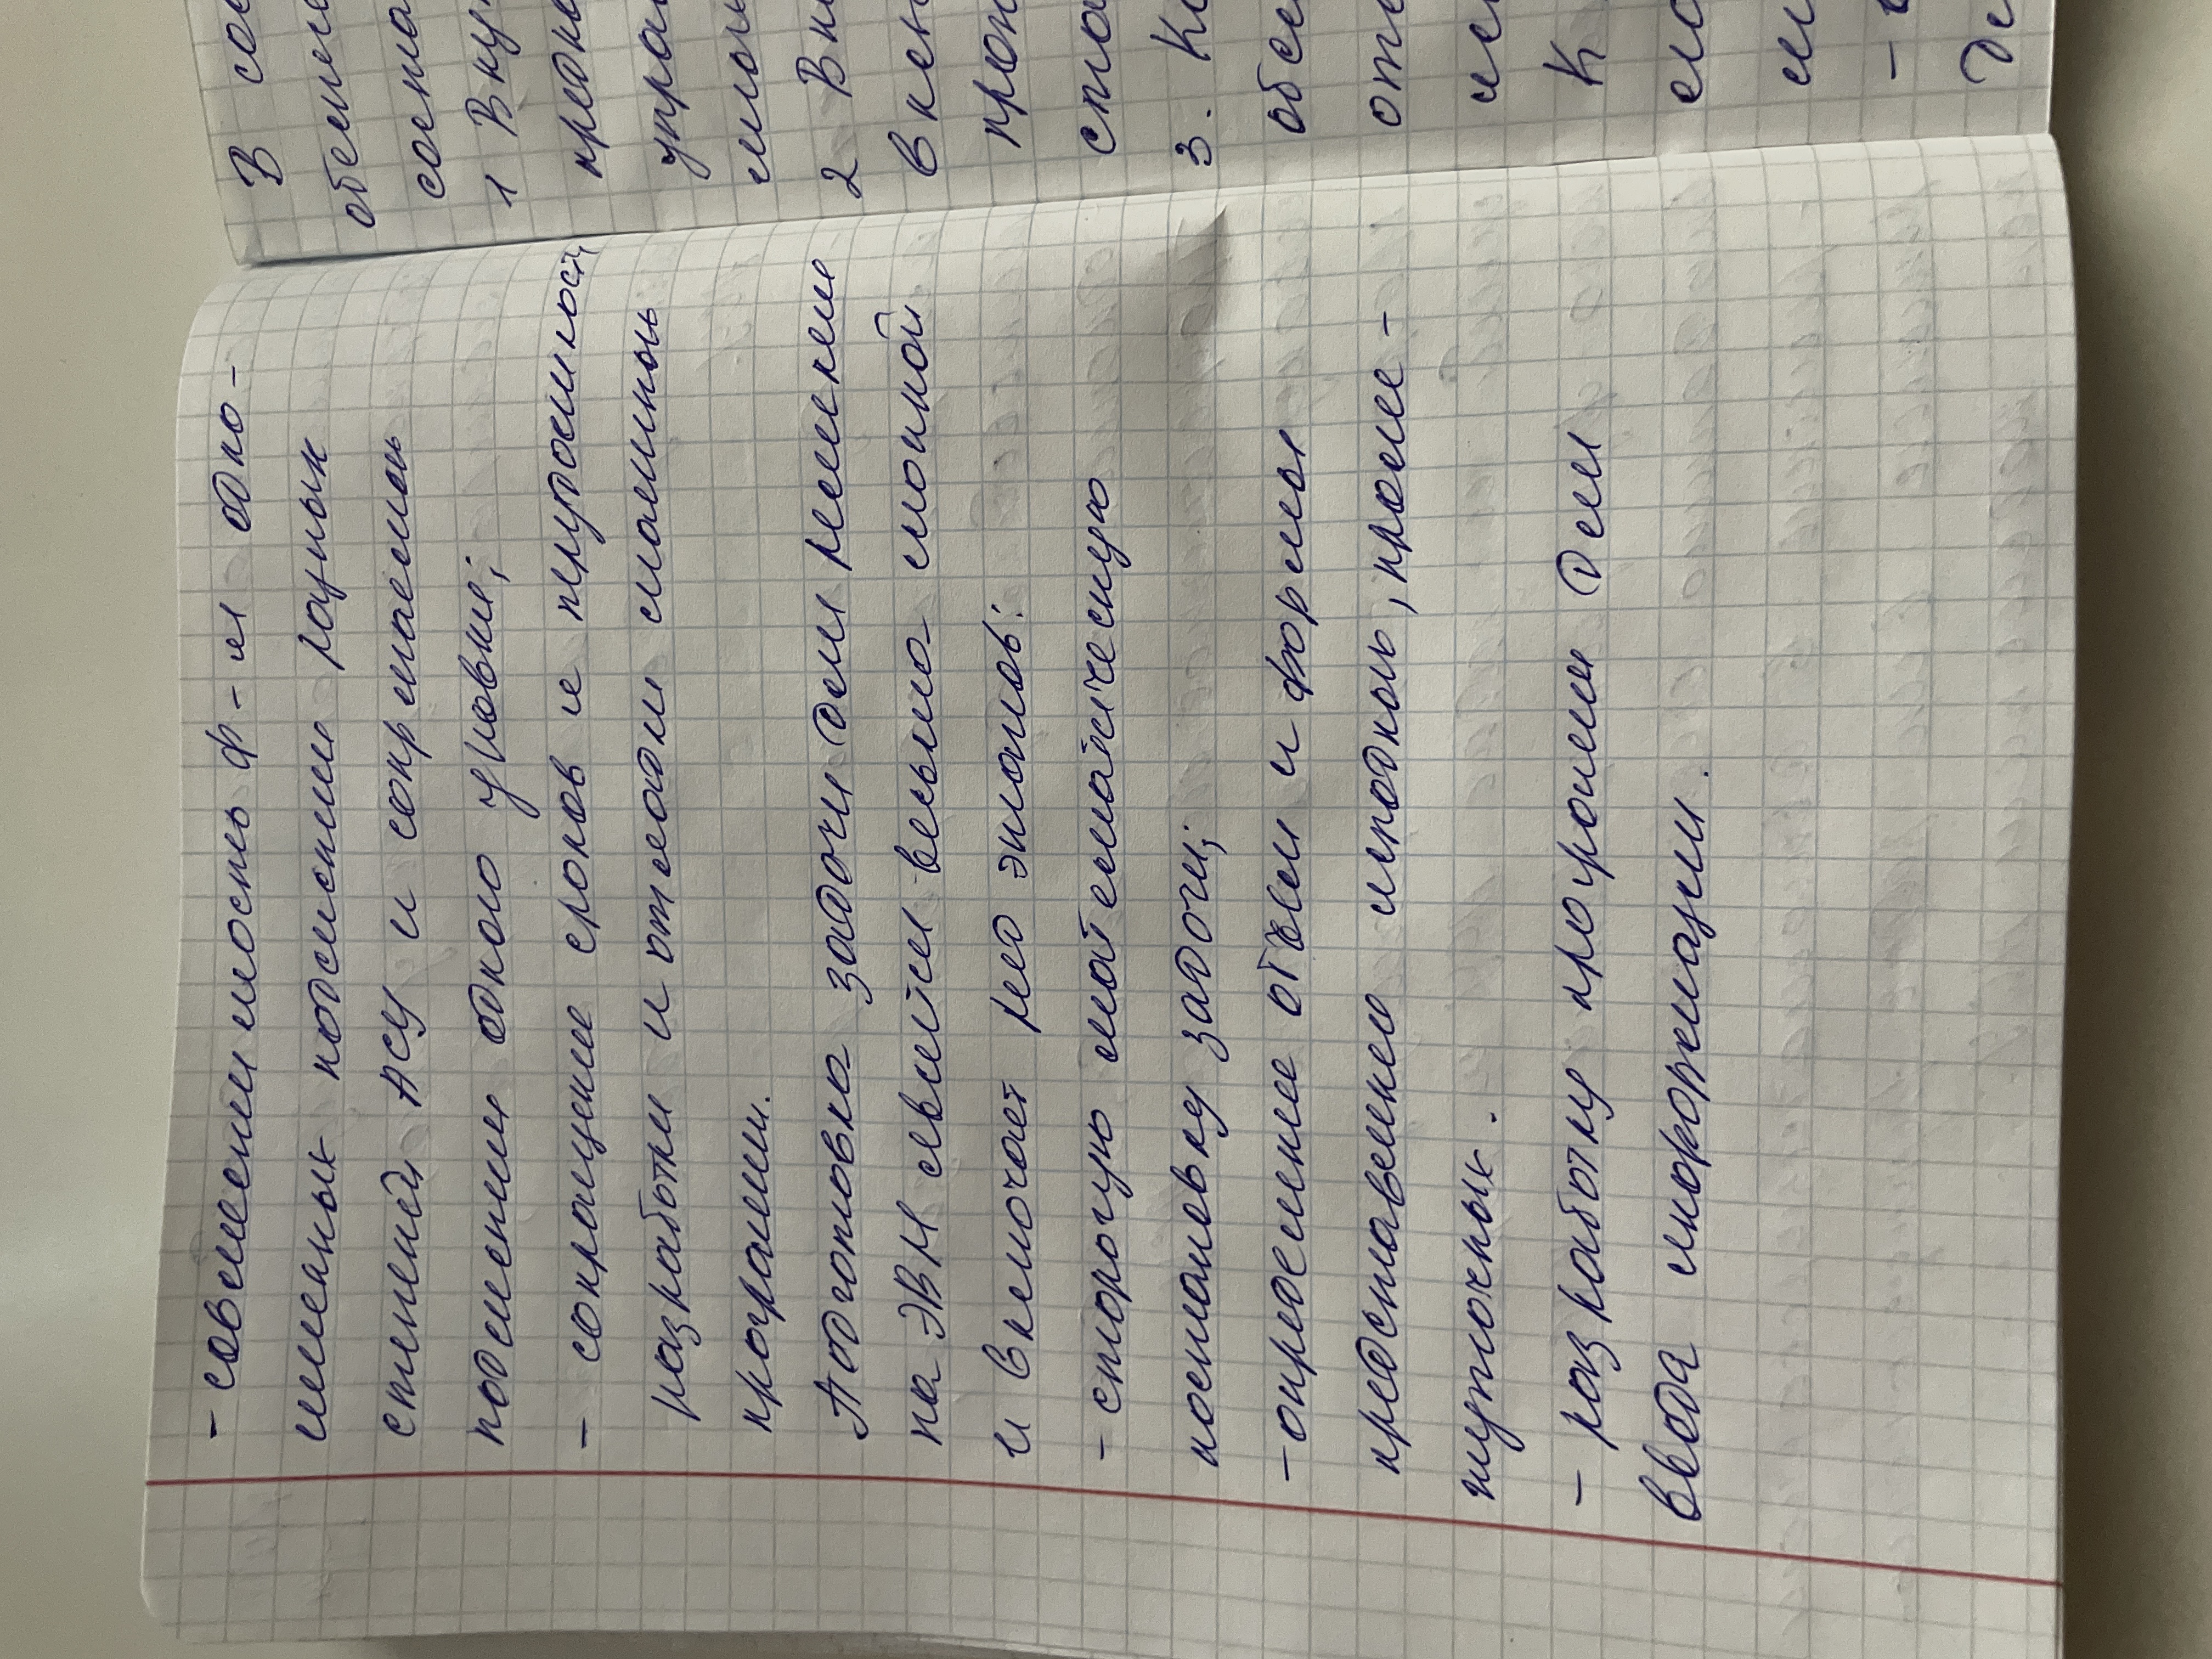 - совместимость ф-и одно-
именных подсистем разных
ступеней АСУ и сопр
подсистем одного уровня;
- сокращение сроков и
разработки и отладки
программ.
Подготовка задачи для решения
на ЭВМ является весьма сложной
и включает ряд этапов:
- строгую математическую
постановку задачи;
- определение объём и формы
представления исходных, проме-
жуточных.
- разработку программ для
ввода информации.
В со
обеспе
соста
1 Вну
предн
упра
2 Вн
в
прои
ста
3. Ко
обес
отн
К
- в